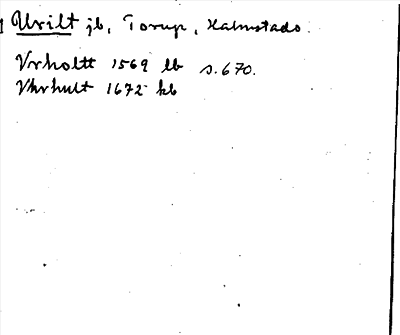 Urilt jb, Torup, Halmstads
Vrholtt 1569 lb s. 670.
Vhrhult 1672 kb